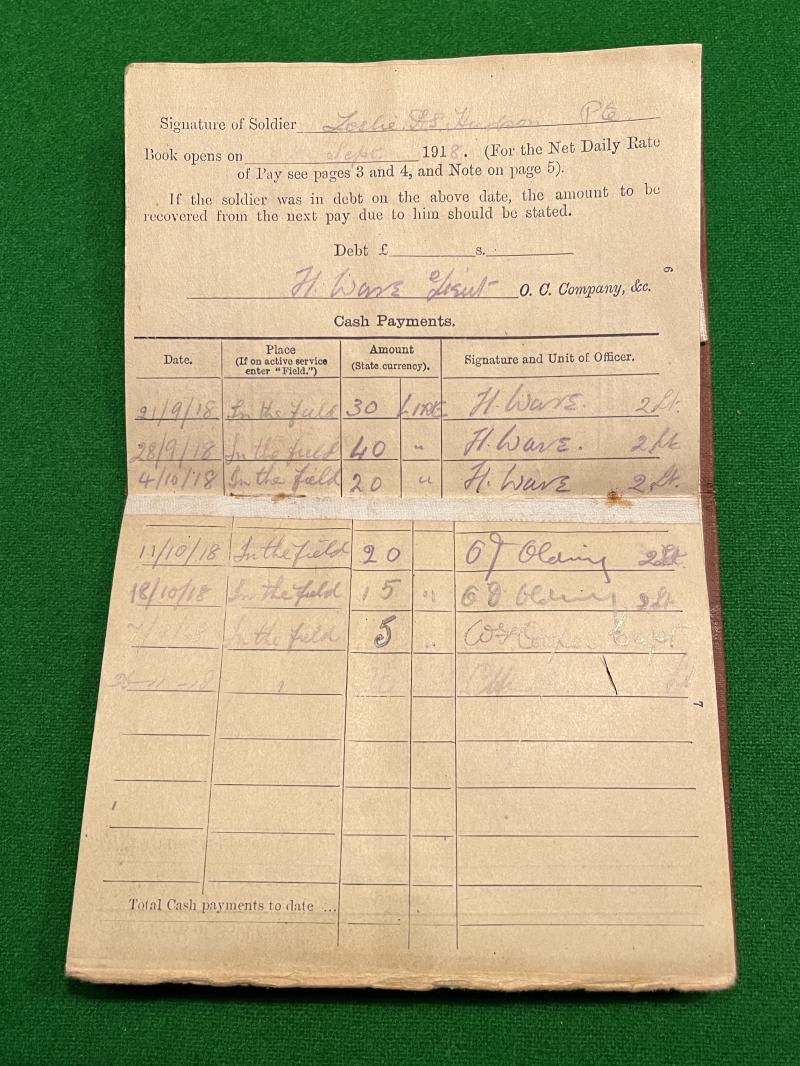 Signature of Soldier Leslie Hudson Pte
Book opens on Sept. 1918. (For the Net Daily Rate
of Pay see pages 3 and 4, and Note on page 5).
If the soldier was in debt on the above date, the amount to be
recovered from the next pay due to him should be stated.
Debt £ s.
H. Ware Lieut O. C. Company, &c.
6
Cash Payments.
Date. Place (If on active service enter "Field.") Amount (State currency). Signature and Unit of Officer.
21/9/18 In the field 30 LIRE H. Ware. 2 Lt.
28/9/18 In the field 40 " H. Ware. 2 Lt
4/10/18 In the field 20 " H. Ware 2 Lt.
11/10/18 In the field 20 Olding 2 Lt.
18/10/18 In the field 15 " Olding 2 Lt.
In the field 5 " Capt
7
Total Cash payments to date ...